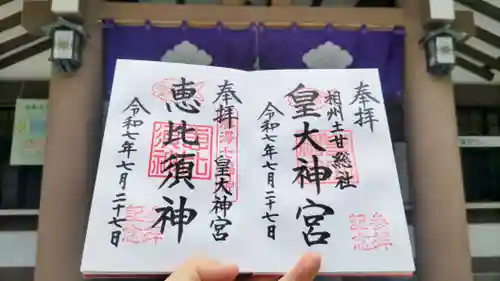 奉拝
相州土甘総社
皇大神宮
令和七年七月二十七日
参拝
記念
奉拝
皇大神宮
恵比須神
令和七年七月二十七日
参拝
記念